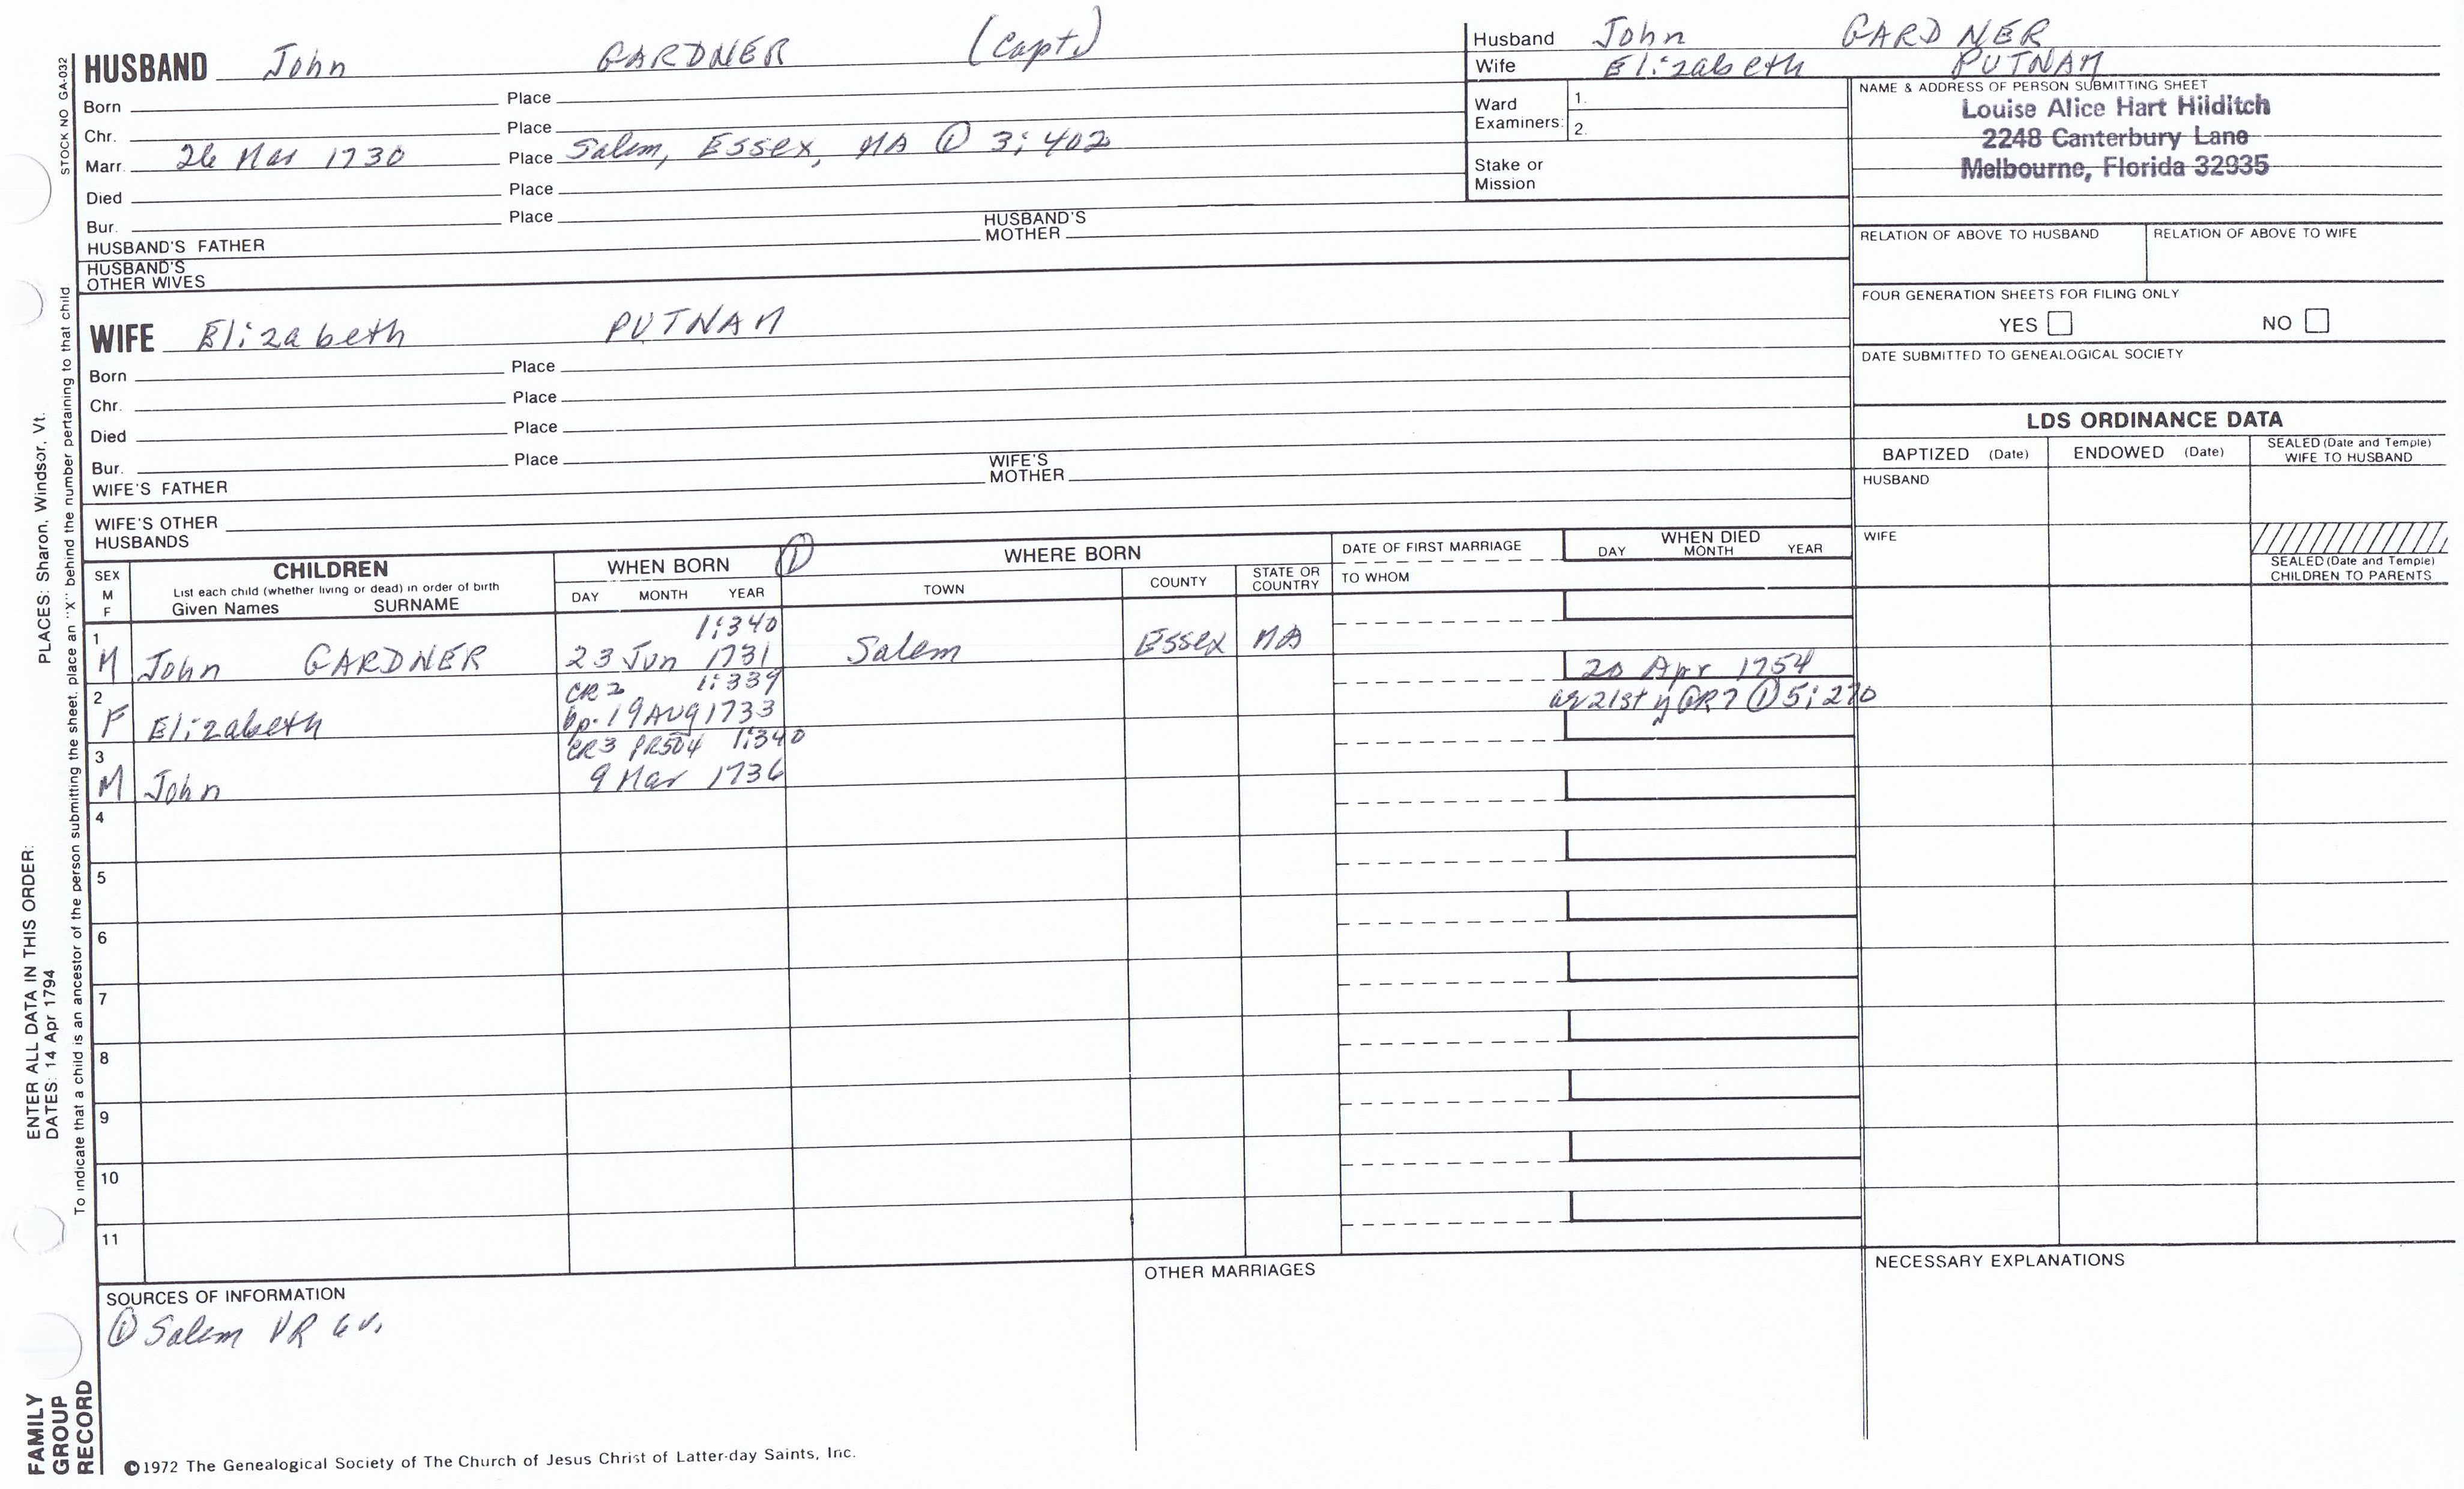 HUSBAND John GARDNER (Capt)
Born Place
Chr. Place
Marr. 26 Mar 1730 Place Salem, Essex, MA ① 3:402
Died Place
Bur. Place
HUSBAND'S FATHER HUSBAND'S MOTHER
HUSBAND'S OTHER WIVES
WIFE Elizabeth PUTNAM
Born Place
Chr. Place
Died Place
Bur. Place
WIFE'S FATHER WIFE'S MOTHER
WIFE'S OTHER HUSBANDS
Husband John GARDNER
Wife Elizabeth PUTNAM
Ward Examiners: 1.
2.
Stake or Mission
NAME & ADDRESS OF PERSON SUBMITTING SHEET
Louise Alice Hart Hilditch
2248 Canterbury Lane
Melbourne, Florida 32935
RELATION OF ABOVE TO HUSBAND RELATION OF ABOVE TO WIFE
FOUR GENERATION SHEETS FOR FILING ONLY
YES NO
DATE SUBMITTED TO GENEALOGICAL SOCIETY
LDS ORDINANCE DATA
BAPTIZED (Date) ENDOWED (Date) SEALED (Date and Temple) WIFE TO HUSBAND
HUSBAND
WIFE
SEALED (Date and Temple) CHILDREN TO PARENTS
SEX M F
CHILDREN
List each child (whether living or dead) in order of birth
Given Names SURNAME
WHEN BORN ①
DAY MONTH YEAR
WHERE BORN
TOWN COUNTY STATE OR COUNTRY
DATE OF FIRST MARRIAGE
TO WHOM
WHEN DIED
DAY MONTH YEAR
1:340
1 M John GARDNER 23 Jun 1731 Salem Essex MA 20 Apr 1754
CR2 1:339 21st y GR7 ① 5:270
2 F Elizabeth bp. 19 AUG 1733
CR3 PR504 1:340
3 M John 9 Mar 1736
4
5
6
7
8
9
10
11
SOURCES OF INFORMATION
① Salem VR 6v.
OTHER MARRIAGES
NECESSARY EXPLANATIONS
©1972 The Genealogical Society of The Church of Jesus Christ of Latter-day Saints, Inc.
STOCK NO GA-032
To indicate that a child is an ancestor of the person submitting the sheet, place an "X" behind the number pertaining to that child
ENTER ALL DATA IN THIS ORDER:
DATES: 14 Apr 1794
PLACES: Sharon, Windsor, Vt.
FAMILY
GROUP
RECORD